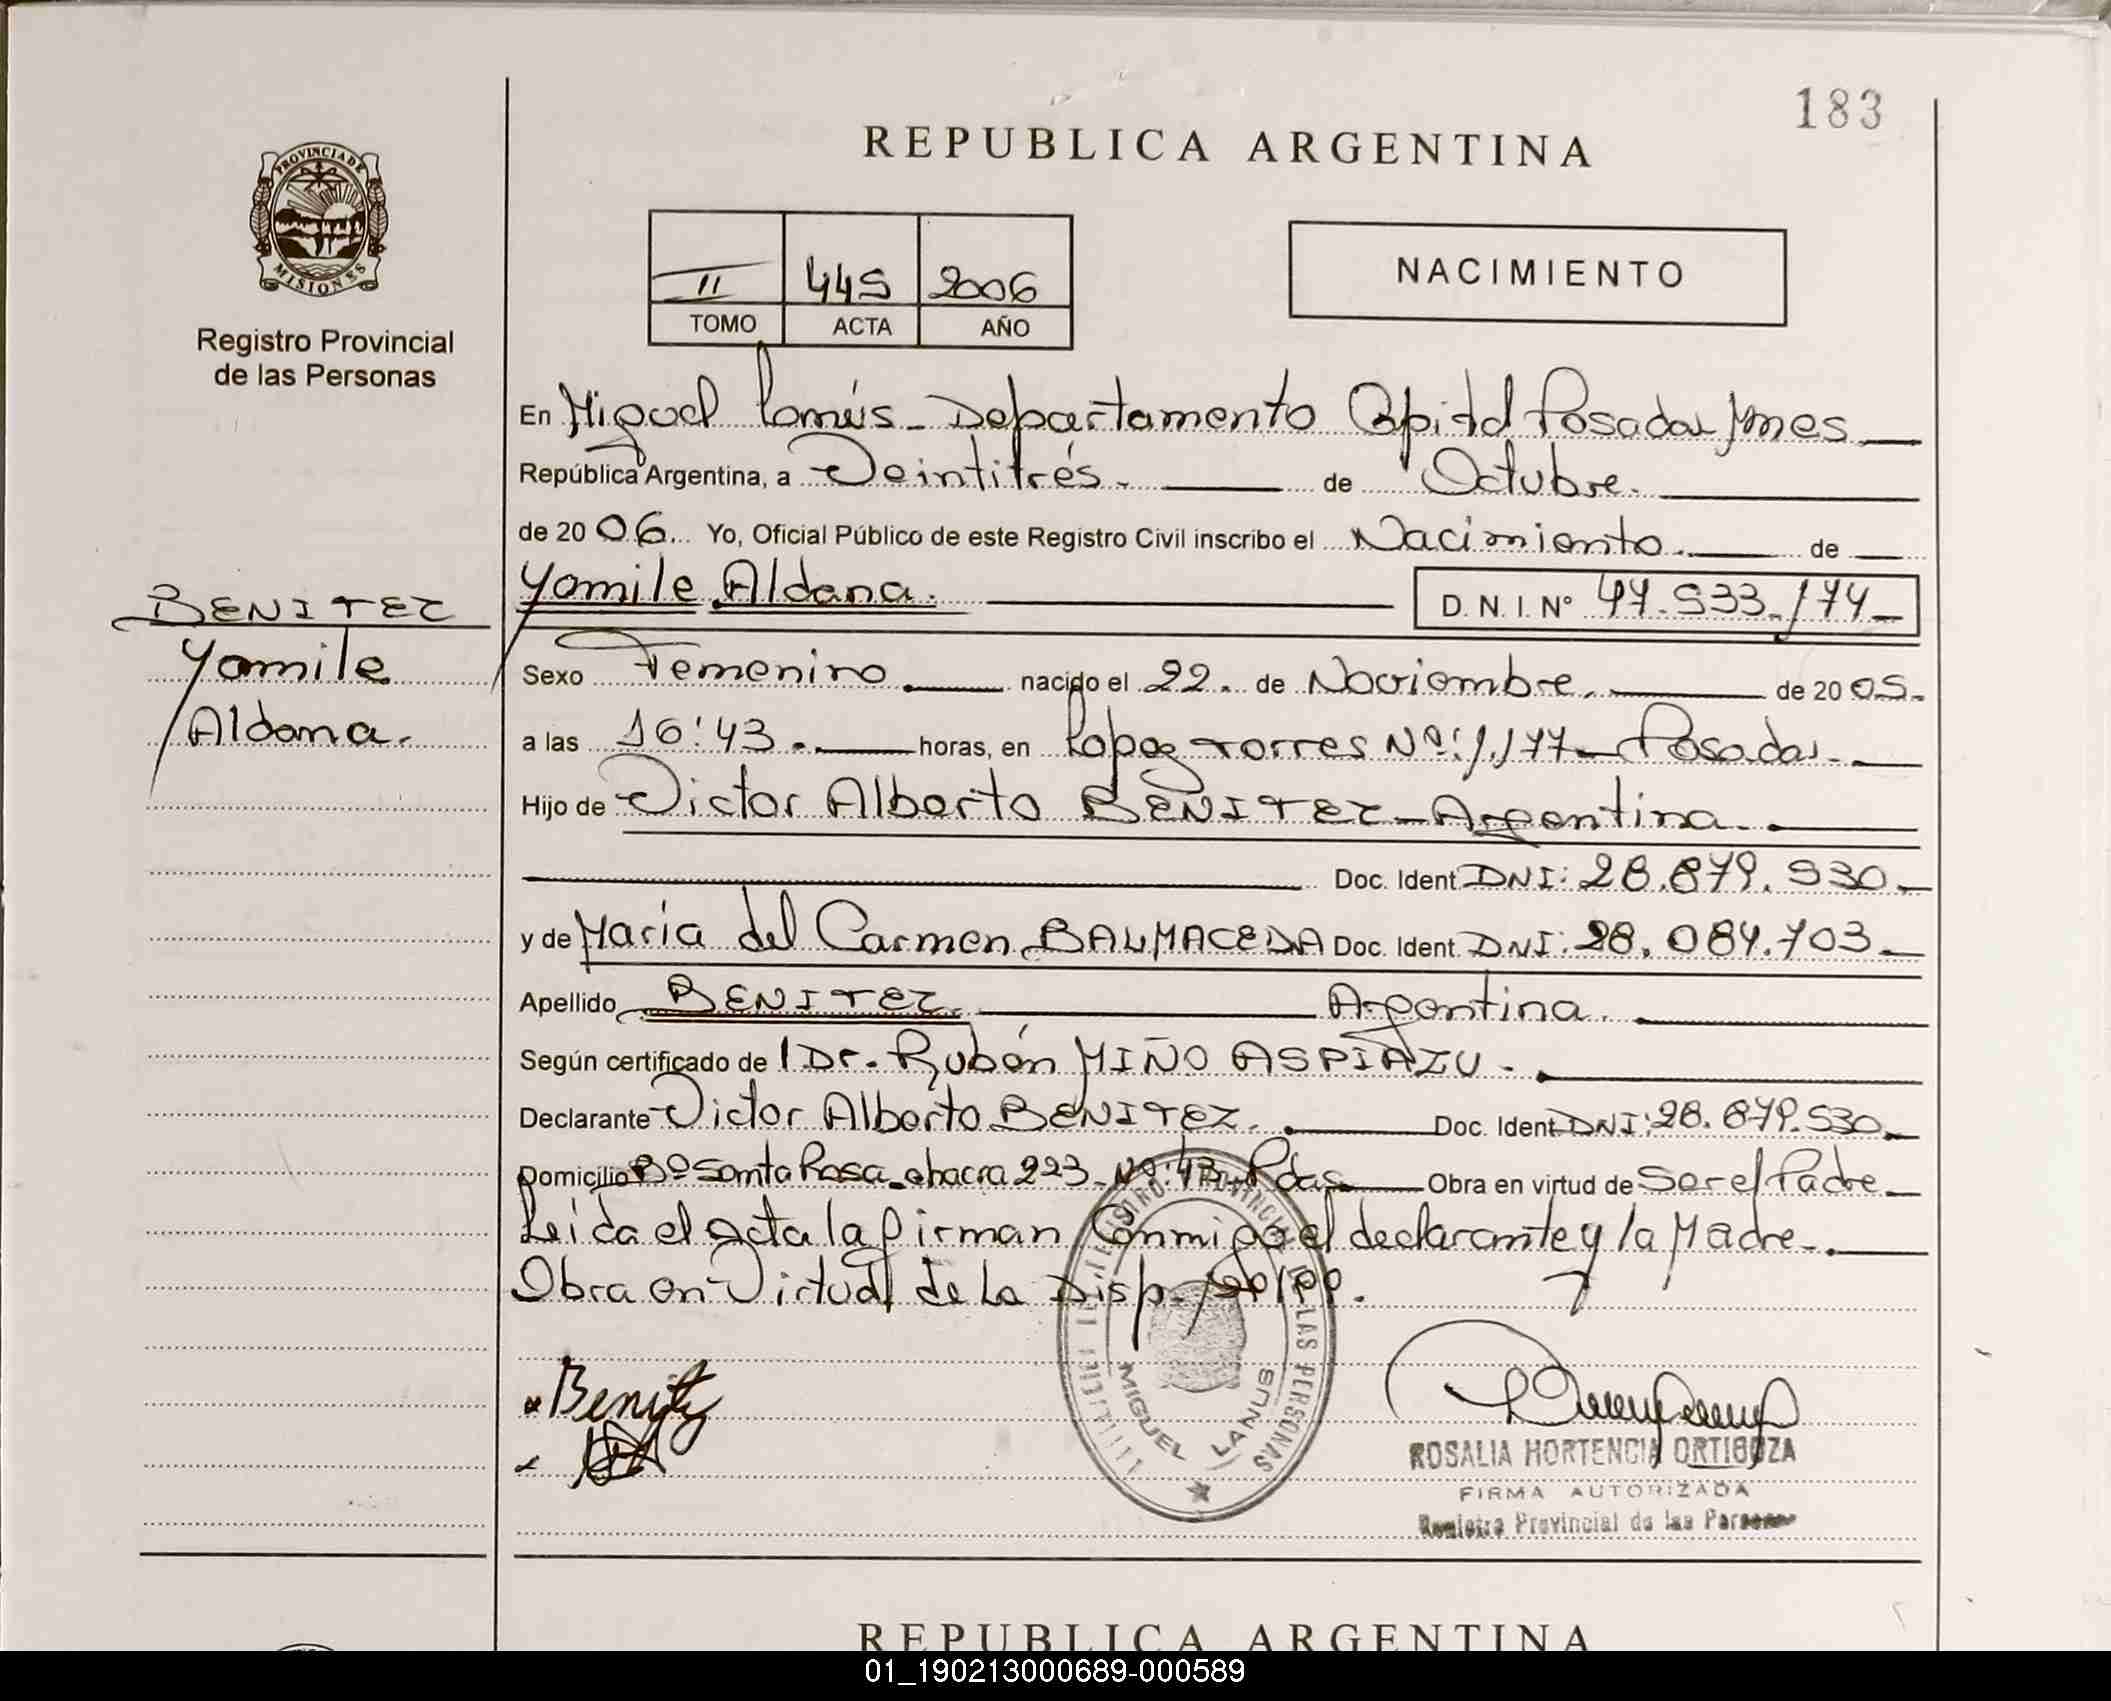 183
REPUBLICA ARGENTINA
PROVINCIA DE
MISIONES
Registro Provincial
de las Personas
II 445 2006
TOMO ACTA AÑO
NACIMIENTO
En Miguel Lanús - Departamento Capital Posadas Mnes
República Argentina, a Veintitrés. de Octubre.
de 20 06. Yo, Oficial Público de este Registro Civil inscribo el Nacimiento. de
Yamile Aldana. D. N. I. Nº 47.533.174
BENITEZ
Yamile
Aldana.
Sexo Femenino nacido el 22. de Noviembre. de 20 05.
a las 16:43. horas, en Lopez Torres Nº: 1.177 - Posadas.
Hijo de Victor Alberto BENITEZ - Argentina.
Doc. Ident. DNI: 28.879.530.
y de María del Carmen BALMACEDA Doc. Ident. DNI: 28.084.703.
Apellido BENITEZ. Argentina.
Según certificado de l Dr. Rubén MIÑO ASPIAZU.
Declarante Victor Alberto BENITEZ. Doc. Ident. DNI: 28.879.530.
Domicilio Bº Santa Rosa - chacra 223 - Nº: 43 - Pdas. Obra en virtud de Ser el Padre
Leida el acta la firman Conmigo el declarante y la Madre.
Obra en Virtud de la Disp.
Benitez
MIGUEL LANUS
LAS PERSONAS
ROSALIA HORTENCIA ORTIGOZA
FIRMA AUTORIZADA
Registro Provincial de las Personas
REPUBLICA ARGENTINA
01_190213000689-000589